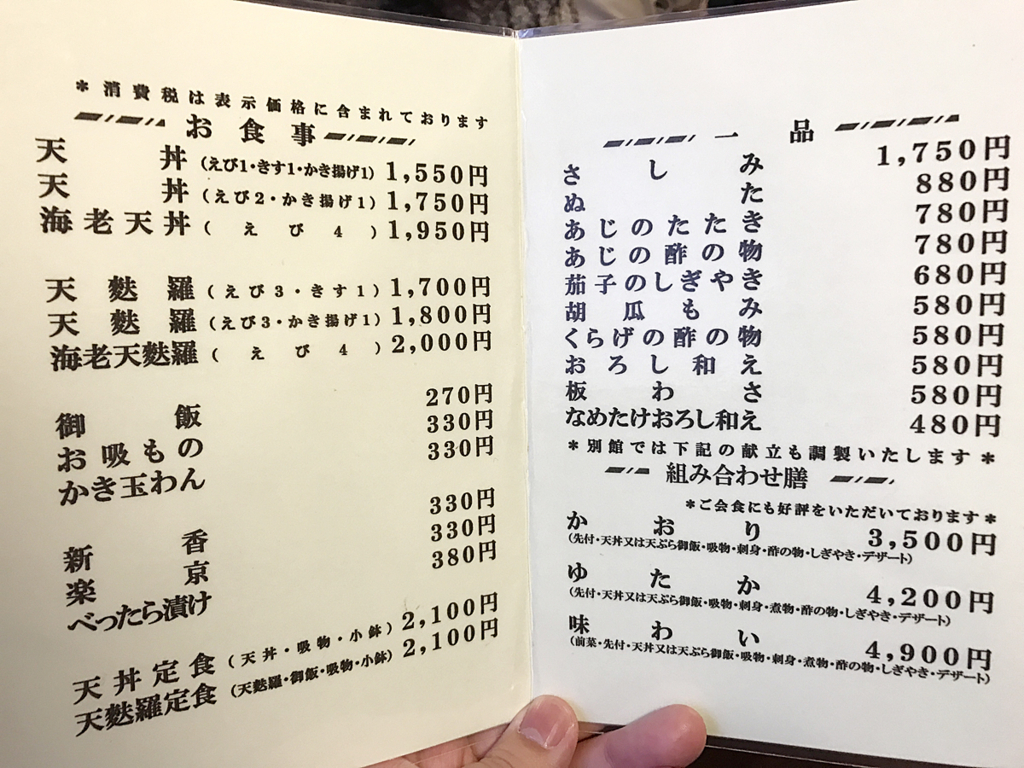 ＊消費税は表示価格に含まれております
お食事
天丼（えび1・きす1・かき揚げ1）1,550円
天丼（えび2・かき揚げ1）1,750円
海老天丼（えび4）1,950円
天麩羅（えび3・きす1）1,700円
天麩羅（えび3・かき揚げ1）1,800円
海老天麩羅（えび4）2,000円
御飯 270円
お吸もの 330円
かき玉わん 330円
新香 330円
楽京 330円
べったら漬け 380円
天丼定食（天丼・吸物・小鉢）2,100円
天麩羅定食（天麩羅・御飯・吸物・小鉢）2,100円
一品
さしみ 1,750円
ぬた 880円
あじのたたき 780円
あじの酢の物 780円
茄子のしぎやき 680円
胡瓜もみ 580円
くらげの酢の物 580円
おろし和え 580円
板わさ 580円
なめたけおろし和え 480円
＊別館では下記の献立も調製いたします＊
組み合わせ膳
＊ご会食にも好評をいただいております＊
かおり 3,500円
（先付・天丼又は天ぷら御飯・吸物・刺身・酢の物・しぎやき・デザート）
ゆたか 4,200円
（先付・天丼又は天ぷら御飯・吸物・刺身・煮物・酢の物・しぎやき・デザート）
味わい 4,900円
（前菜・先付・天丼又は天ぷら御飯・吸物・刺身・煮物・酢の物・しぎやき・デザート）